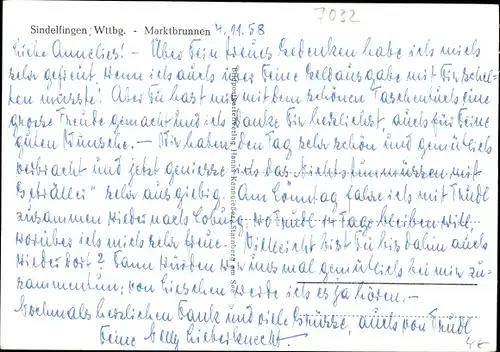 7032
Sindelfingen, Wttbg. - Marktbrunnen 4.11.58
Liebe Annelies! - Über Dein treues Gedenken habe ich mich
sehr gefreut, wenn ich auch über Deine Geldausgabe mit Dir schel-
ten müsste! Aber Du hast mir mit dem schönen Taschentuch eine
grosse Freude gemacht und ich danke Dir herzlichst auch für Deine
guten Wünsche. - Wir haben den Tag sehr schön und gemütlich
verbracht und jetzt geniesse ich das Nichtstunmüssen mit
sehr ausgiebig. Am Sonntag fahre ich mit Trudl
zusammen wieder nach Coburg, wo Trudl 14 Tage bleiben will,
worüber ich mich sehr freue. Vielleicht bist Du bis dahin auch
wieder dort? Dann würden wir uns mal gemütlich bei mir zu-
sammentun; von Lieschen werde ich es ja hören. -
Nochmals herzlichen Dank und viele Grüsse, auch von Trudl
Deine Gelly Liebesknecht.
4€
Postkartenverlag Hanns Starnberg am See